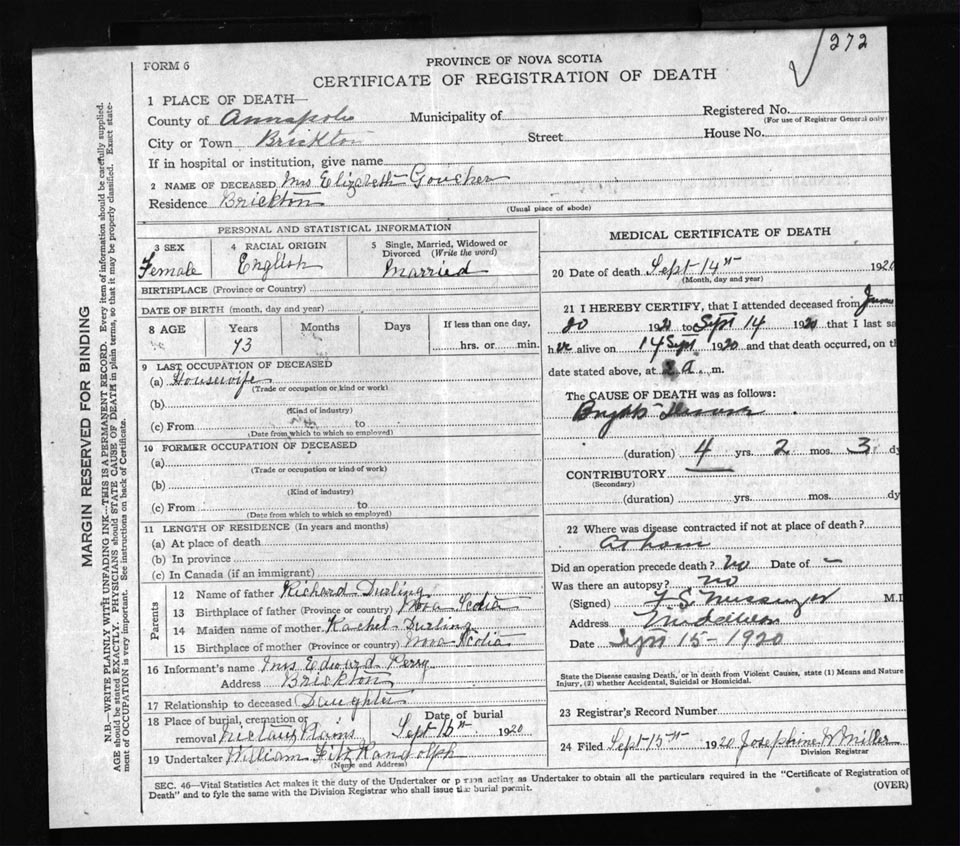 272
FORM 6
PROVINCE OF NOVA SCOTIA
CERTIFICATE OF REGISTRATION OF DEATH
MARGIN RESERVED FOR BINDING
N.B.—WRITE PLAINLY WITH UNFADING INK—THIS IS A PERMANENT RECORD. Every item of information should be carefully supplied.
AGE should be stated EXACTLY. PHYSICIANS should STATE CAUSE OF DEATH in plain terms, so that it may be properly classified. Exact state-
ment of OCCUPATION is very important. See instructions on back of Certificate.
1 PLACE OF DEATH—
County of Annapolis Municipality of Registered No.
(For use of Registrar General only)
City or Town Brickton Street House No.
If in hospital or institution, give name
2 NAME OF DECEASED Mrs Elizabeth Goucher
Residence Brickton
(Usual place of abode)
PERSONAL AND STATISTICAL INFORMATION
3 SEX
Female
4 RACIAL ORIGIN
English
5 Single, Married, Widowed or
Divorced (Write the word)
Married
BIRTHPLACE (Province or Country)
DATE OF BIRTH (month, day and year)
8 AGE Years Months Days If less than one day,
73 hrs. or min.
9 LAST OCCUPATION OF DECEASED
(a) Housewife
(Trade or occupation or kind or work)
(b)
(Kind of industry)
(c) From to
(Date from which to which so employed)
10 FORMER OCCUPATION OF DECEASED
(a)
(Trade or occupation or kind of work)
(b)
(Kind of industry)
(c) From to
(Date from which to which so employed)
11 LENGTH OF RESIDENCE (In years and months)
(a) At place of death
(b) In province
(c) In Canada (if an immigrant)
Parents
12 Name of father Richard Durling
13 Birthplace of father (Province or country) Nova Scotia
14 Maiden name of mother Rachel Durling
15 Birthplace of mother (Province or country) Nova Scotia
16 Informant's name Mrs Edward Perry
Address Brickton
17 Relationship to deceased Daughter
18 Place of burial, cremation or Date of burial
removal Nictaux Plains Sept 15th 1920
19 Undertaker William Fitz Randolph
(Name and Address)
MEDICAL CERTIFICATE OF DEATH
20 Date of death Sept 14th 1920
(Month, day and year)
21 I HEREBY CERTIFY, that I attended deceased from June
20 1920 to Sept 14 1920 that I last sa
her alive on 14 Sept 1920 and that death occurred, on th
date stated above, at 2 A. m.
The CAUSE OF DEATH was as follows:
Brights Disease
(duration) 4 yrs. 2 mos. 3 dy
CONTRIBUTORY
(Secondary)
(duration) yrs. mos. dy
22 Where was disease contracted if not at place of death?
At home
Did an operation precede death? no Date of –
Was there an autopsy? no
(Signed) F S Messenger M.D
Address Middleton
Date Sept 15 - 1920
State the Disease causing Death, or in death from Violent Causes, state (1) Means and Nature
Injury, (2) whether Accidental, Suicidal or Homicidal.
23 Registrar's Record Number
24 Filed Sept 15th 1920 Josephine W Miller
Division Registrar
SEC. 46—Vital Statistics Act makes it the duty of the Undertaker or person acting as Undertaker to obtain all the particulars required in the "Certificate of Registration of
Death" and to fyle the same with the Division Registrar who shall issue the burial permit. (OVER)